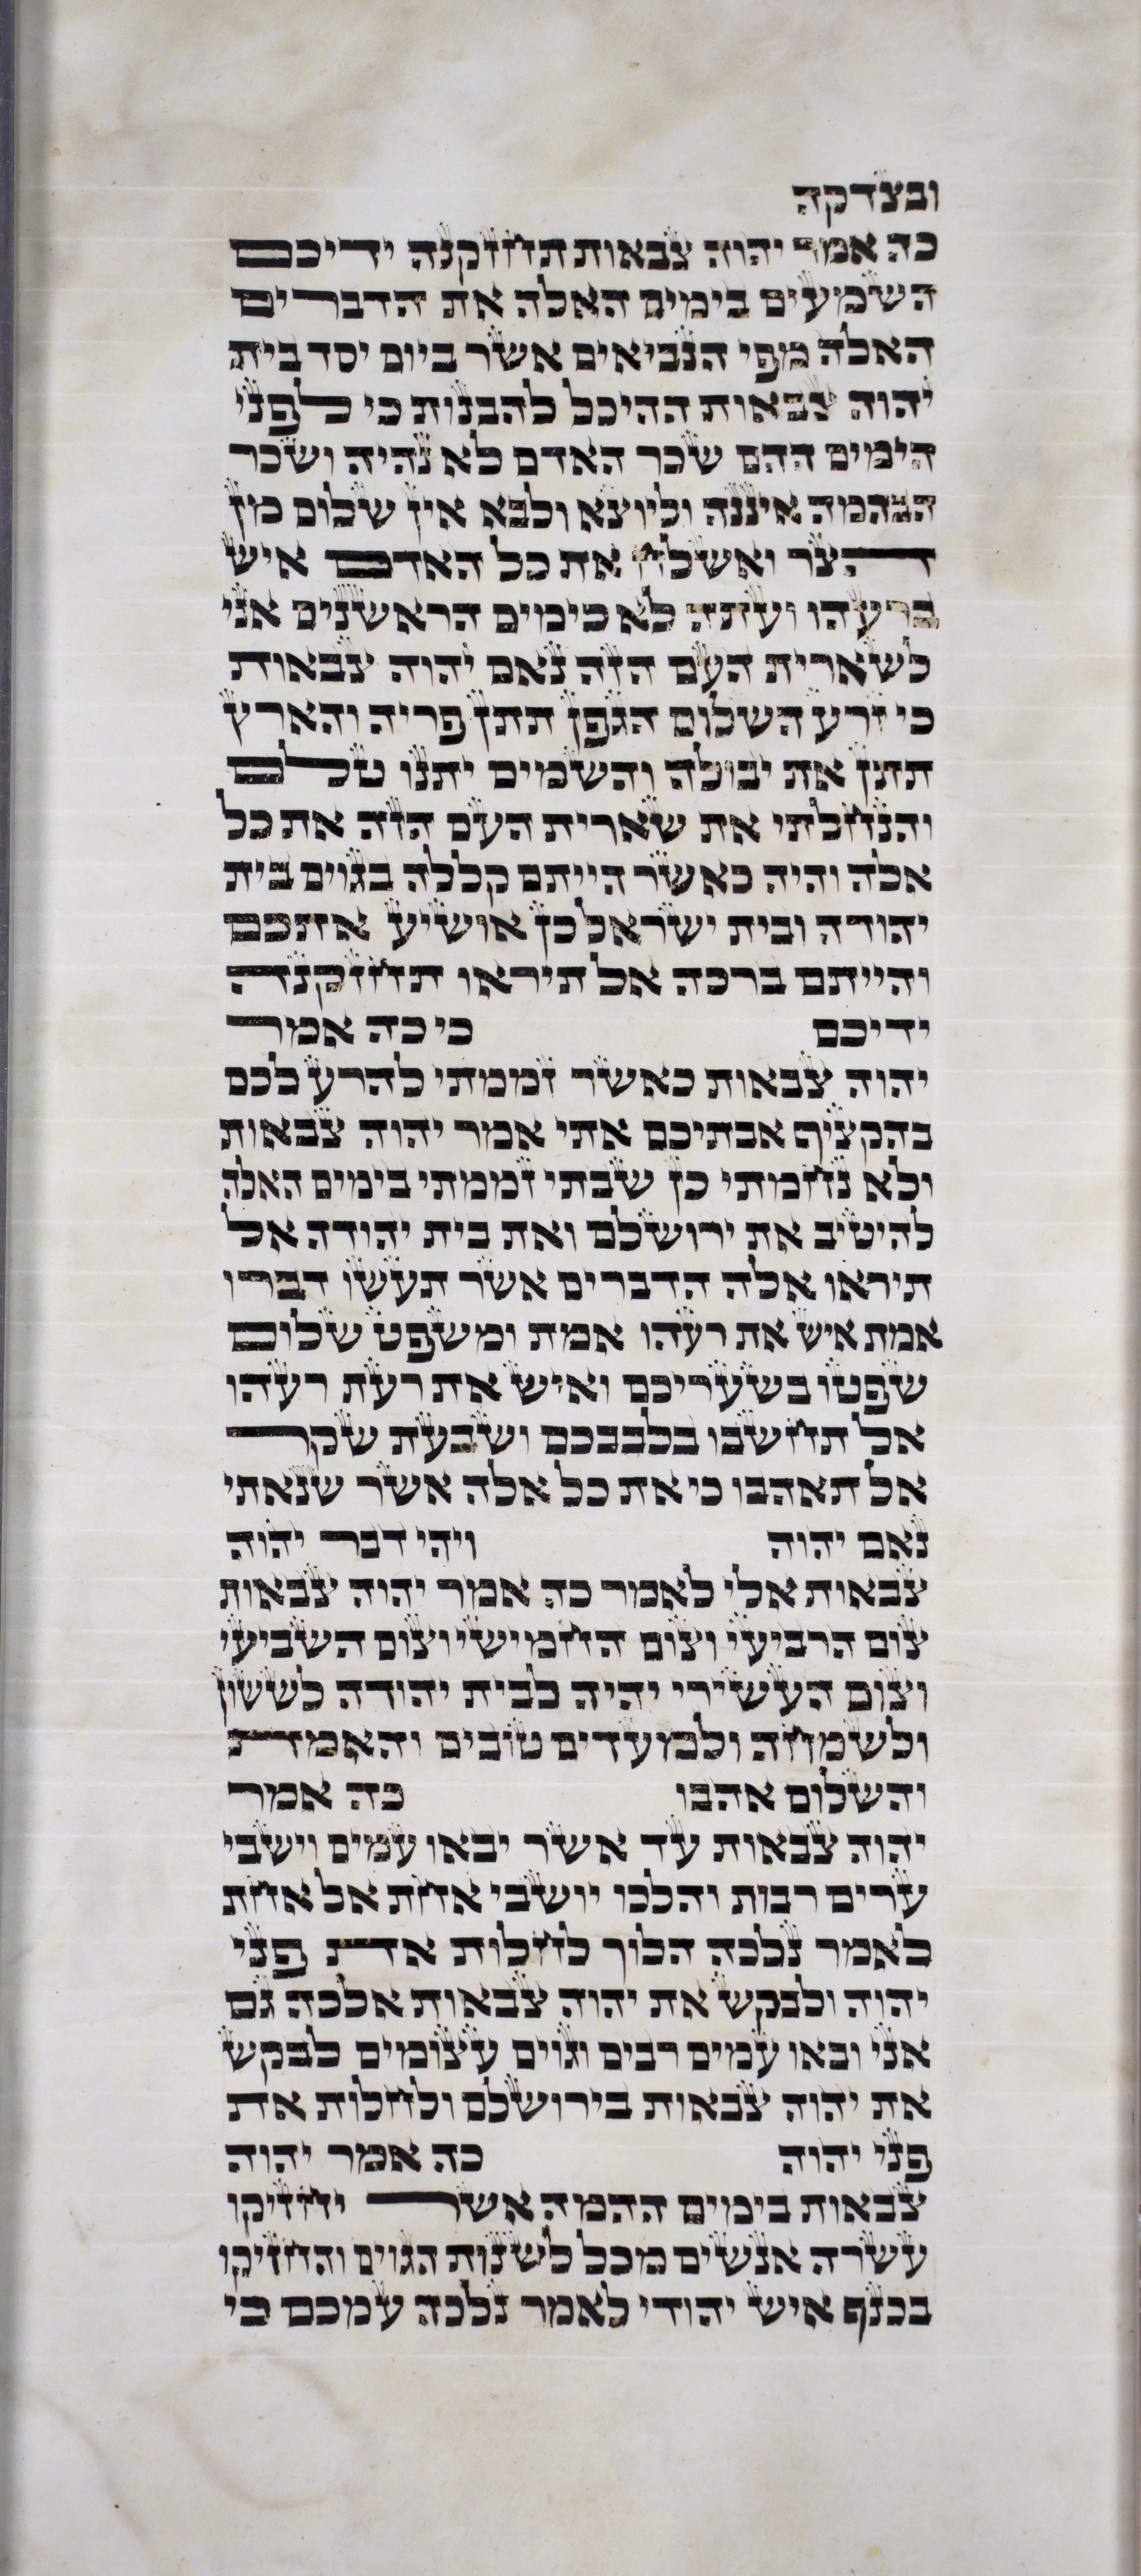 ובצדקה
כה אמר יהוה צבאות תחזקנה ידיכם
השמעים בימים האלה את הדברים
האלה מפי הנביאים אשר ביום יסד בית
יהוה צבאות ההיכל להבנות כי לפני
הימים ההם שכר האדם לא נהיה ושכר
הבהמה איננה וליוצא ולבא אין שלום מן
הצר ואשלח את כל האדם איש
ברעהו ועתה לא כימים הראשנים אני
לשארית העם הזה נאם יהוה צבאות
כי זרע השלום הגפן תתן פריה והארץ
תתן את יבולה והשמים יתנו טלם
והנחלתי את שארית העם הזה את כל
אלה והיה כאשר הייתם קללה בגוים בית
יהודה ובית ישראל כן אושיע אתכם
והייתם ברכה אל תיראו תחזקנה
ידיכם כי כה אמר
יהוה צבאות כאשר זממתי להרע לכם
בהקציף אבתיכם אתי אמר יהוה צבאות
ולא נחמתי כן שבתי זממתי בימים האלה
להיטיב את ירושלם ואת בית יהודה אל
תיראו אלה הדברים אשר תעשו דברו
אמת איש את רעהו אמת ומשפט שלום
שפטו בשעריכם ואיש את רעת רעהו
אל תחשבו בלבבכם ושבעת שקר
אל תאהבו כי את כל אלה אשר שנאתי
נאם יהוה ויהי דבר יהוה
צבאות אלי לאמר כה אמר יהוה צבאות
צום הרביעי וצום החמישי וצום השביעי
וצום העשירי יהיה לבית יהודה לששון
ולשמחה ולמעדים טובים והאמת
והשלום אהבו כה אמר
יהוה צבאות עד אשר יבאו עמים וישבי
ערים רבות והלכו יושבי אחת אל אחת
לאמר נלכה הלוך לחלות את פני
יהוה ולבקש את יהוה צבאות אלכה גם
אני ובאו עמים רבים וגוים עצומים לבקש
את יהוה צבאות בירושלם ולחלות את
פני יהוה כה אמר יהוה
צבאות בימים ההמה אשר יחזיקו
עשרה אנשים מכל לשנות הגוים והחזיקו
בכנף איש יהודי לאמר נלכה עמכם כי